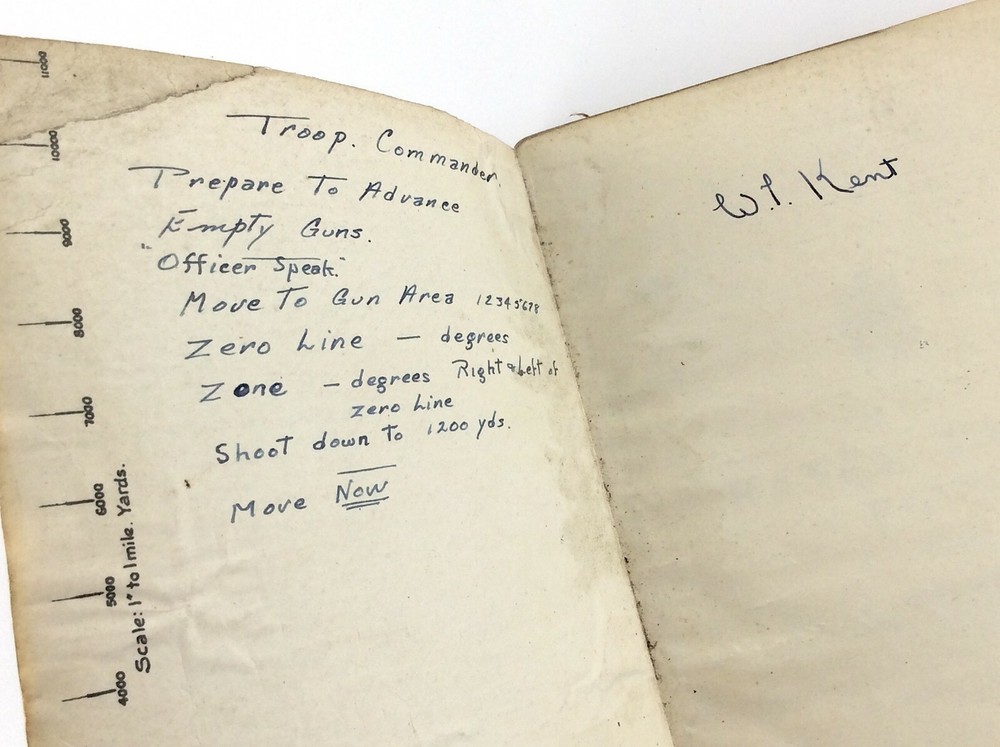 Troop. Commander.
Prepare To Advance
Empty Guns.
"Officer Speak."
Move To Gun Area 12345678
Zero Line — degrees
Zone — degrees Right & Left of
zero Line
Shoot down to 1200 yds.
Move Now
11000
10000
9000
8000
7000
6000
5000
4000
Scale: 1" to 1 mile. Yards.
Kent